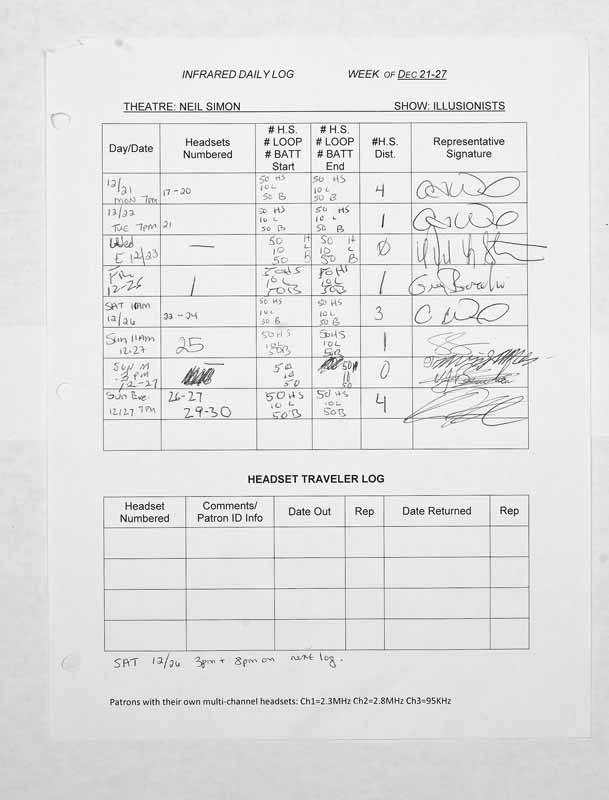 INFRARED DAILY LOG WEEK OF DEC 21-27
THEATRE: NEIL SIMON SHOW: ILLUSIONISTS
Day/Date
Headsets
Numbered
# H.S.
# LOOP
# BATT
Start
# H.S.
# LOOP
# BATT
End
#H.S.
Dist.
Representative
Signature
12/21
MON 7pm
17-20
50 HS
10 L
50 B
50 HS
10 L
50 B
4
12/22
TUE 7pm
21
50 HS
10 L
50 B
50 HS
10 L
50 B
1
Wed
E 12/23
—
50 H
10 L
50 B
50 H
10 L
50 B
0
FRI
12-25
1
50HS
10 L
50B
50HS
10 L
50B
1
SAT 11AM
12/26
22-24
50 HS
10 L
50 B
50 HS
10 L
50 B
3
Sun 11AM
12.27
25
50HS
10L
50B
50HS
10L
50B
1
SUN M
3 PM
12-27
50
10
50
50
10
50
0
Sun Eve.
12/27 7PM
26-27
29-30
50HS
10 L
50B
50HS
10L
50B
4
HEADSET TRAVELER LOG
Headset
Numbered
Comments/
Patron ID Info
Date Out
Rep
Date Returned
Rep
SAT 12/26 3pm + 8pm on next log.
Patrons with their own multi-channel headsets: Ch1=2.3MHz Ch2=2.8MHz Ch3=95KHz